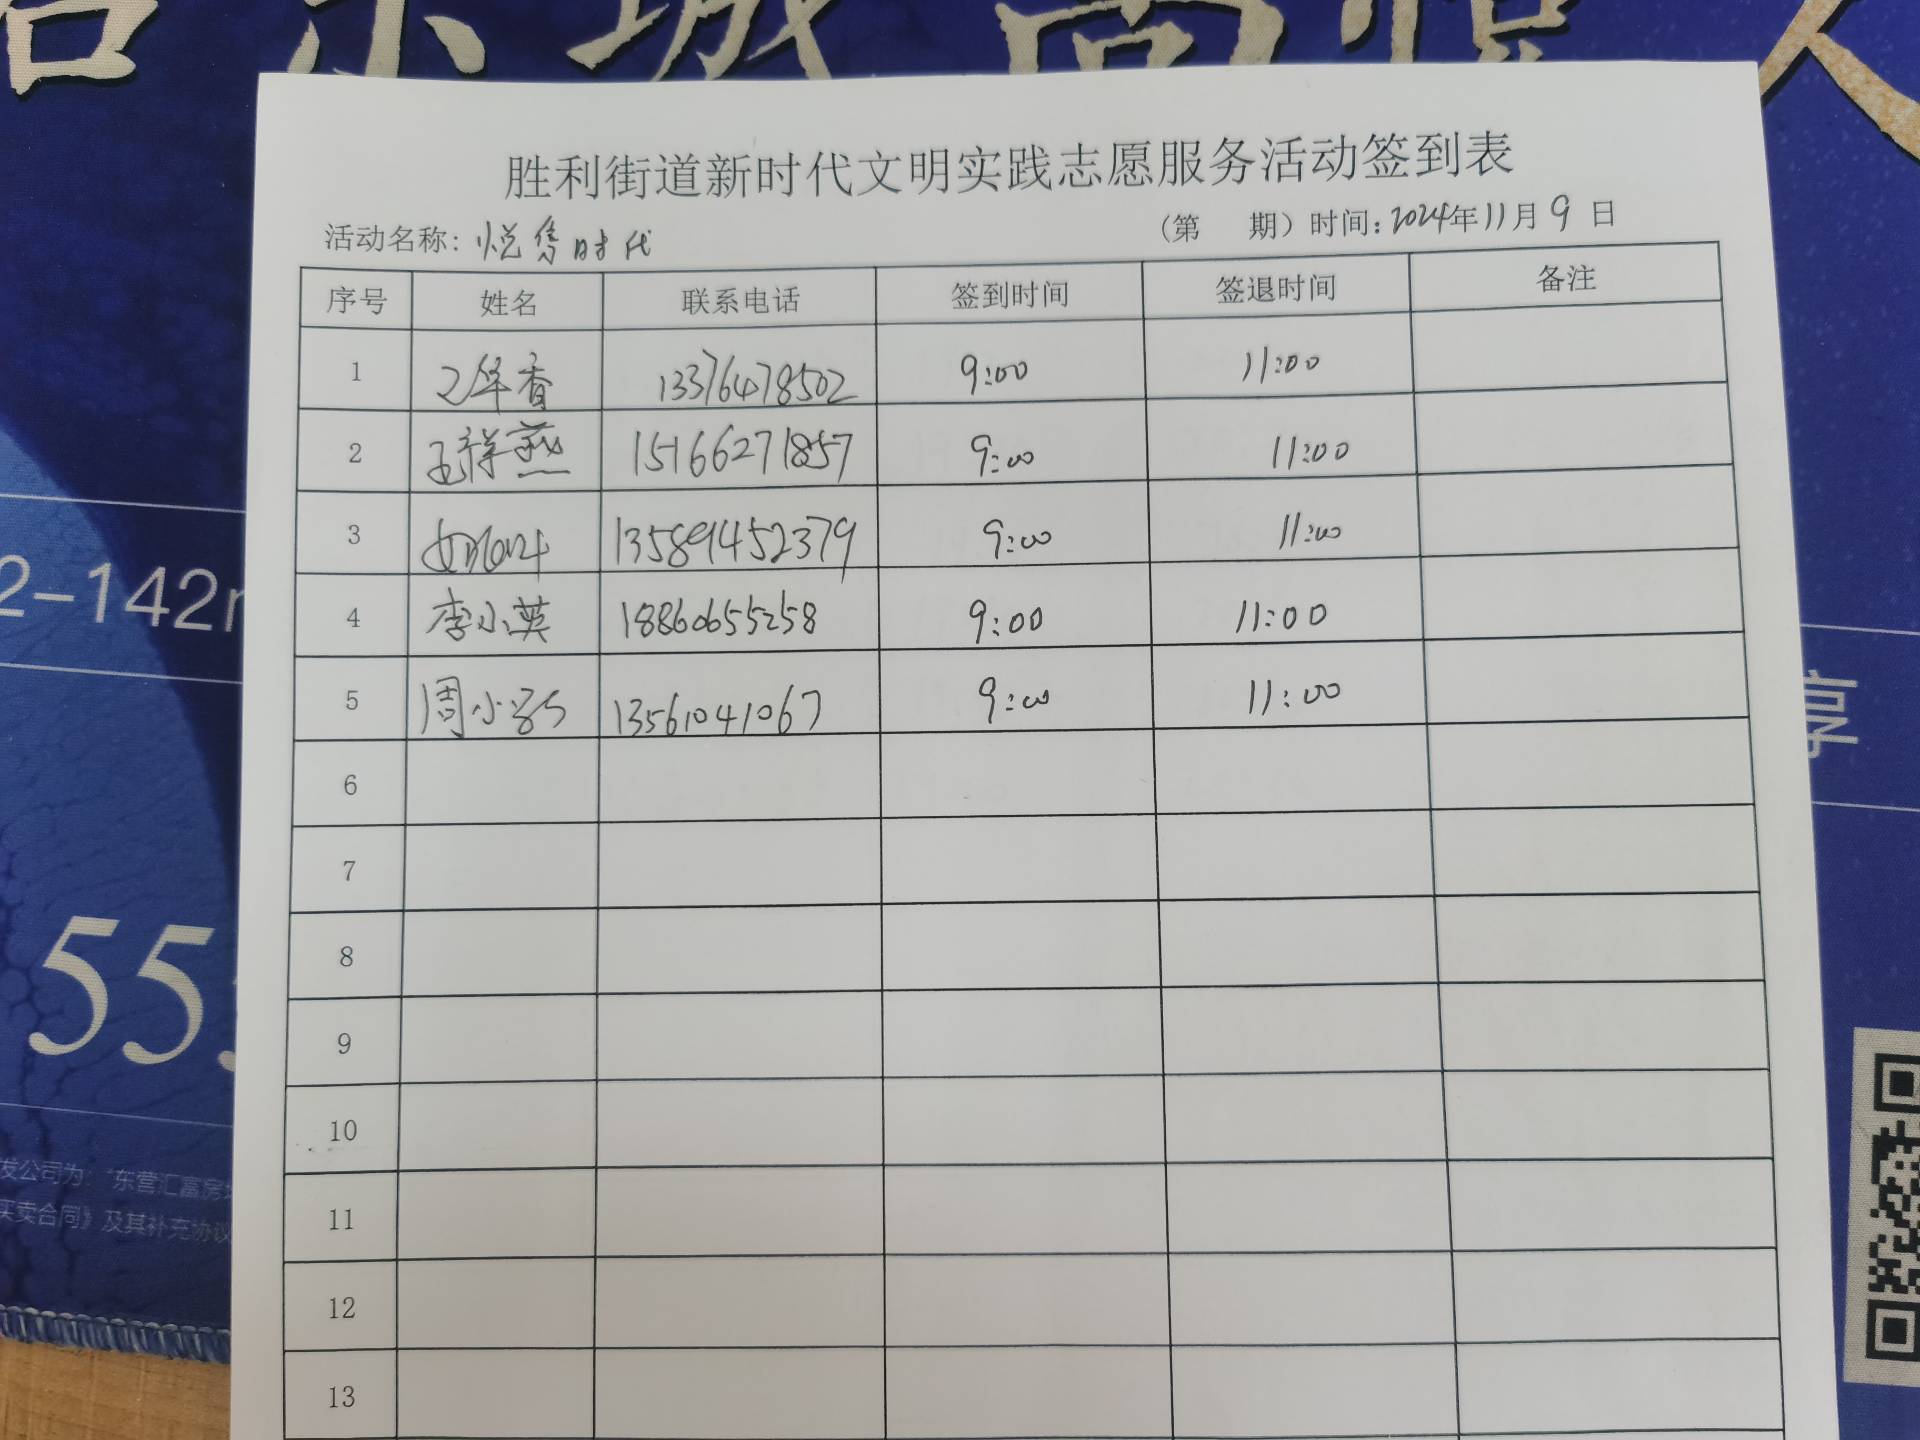 2-142m
55
发公司为："东营汇富房
买卖合同》及其补充协议
享
胜利街道新时代文明实践志愿服务活动签到表
活动名称：悦隽时代 （第 期）时间：2024年11月9日
序号 姓名 联系电话 签到时间 签退时间 备注
1 13376478502 9:00 11:00
2 王祥燕 15166271857 9:00 11:00
3 13589452379 9:00 11:00
4 李小英 18860655258 9:00 11:00
5 周小 13561041067 9:00 11:00
6
7
8
9
10
11
12
13